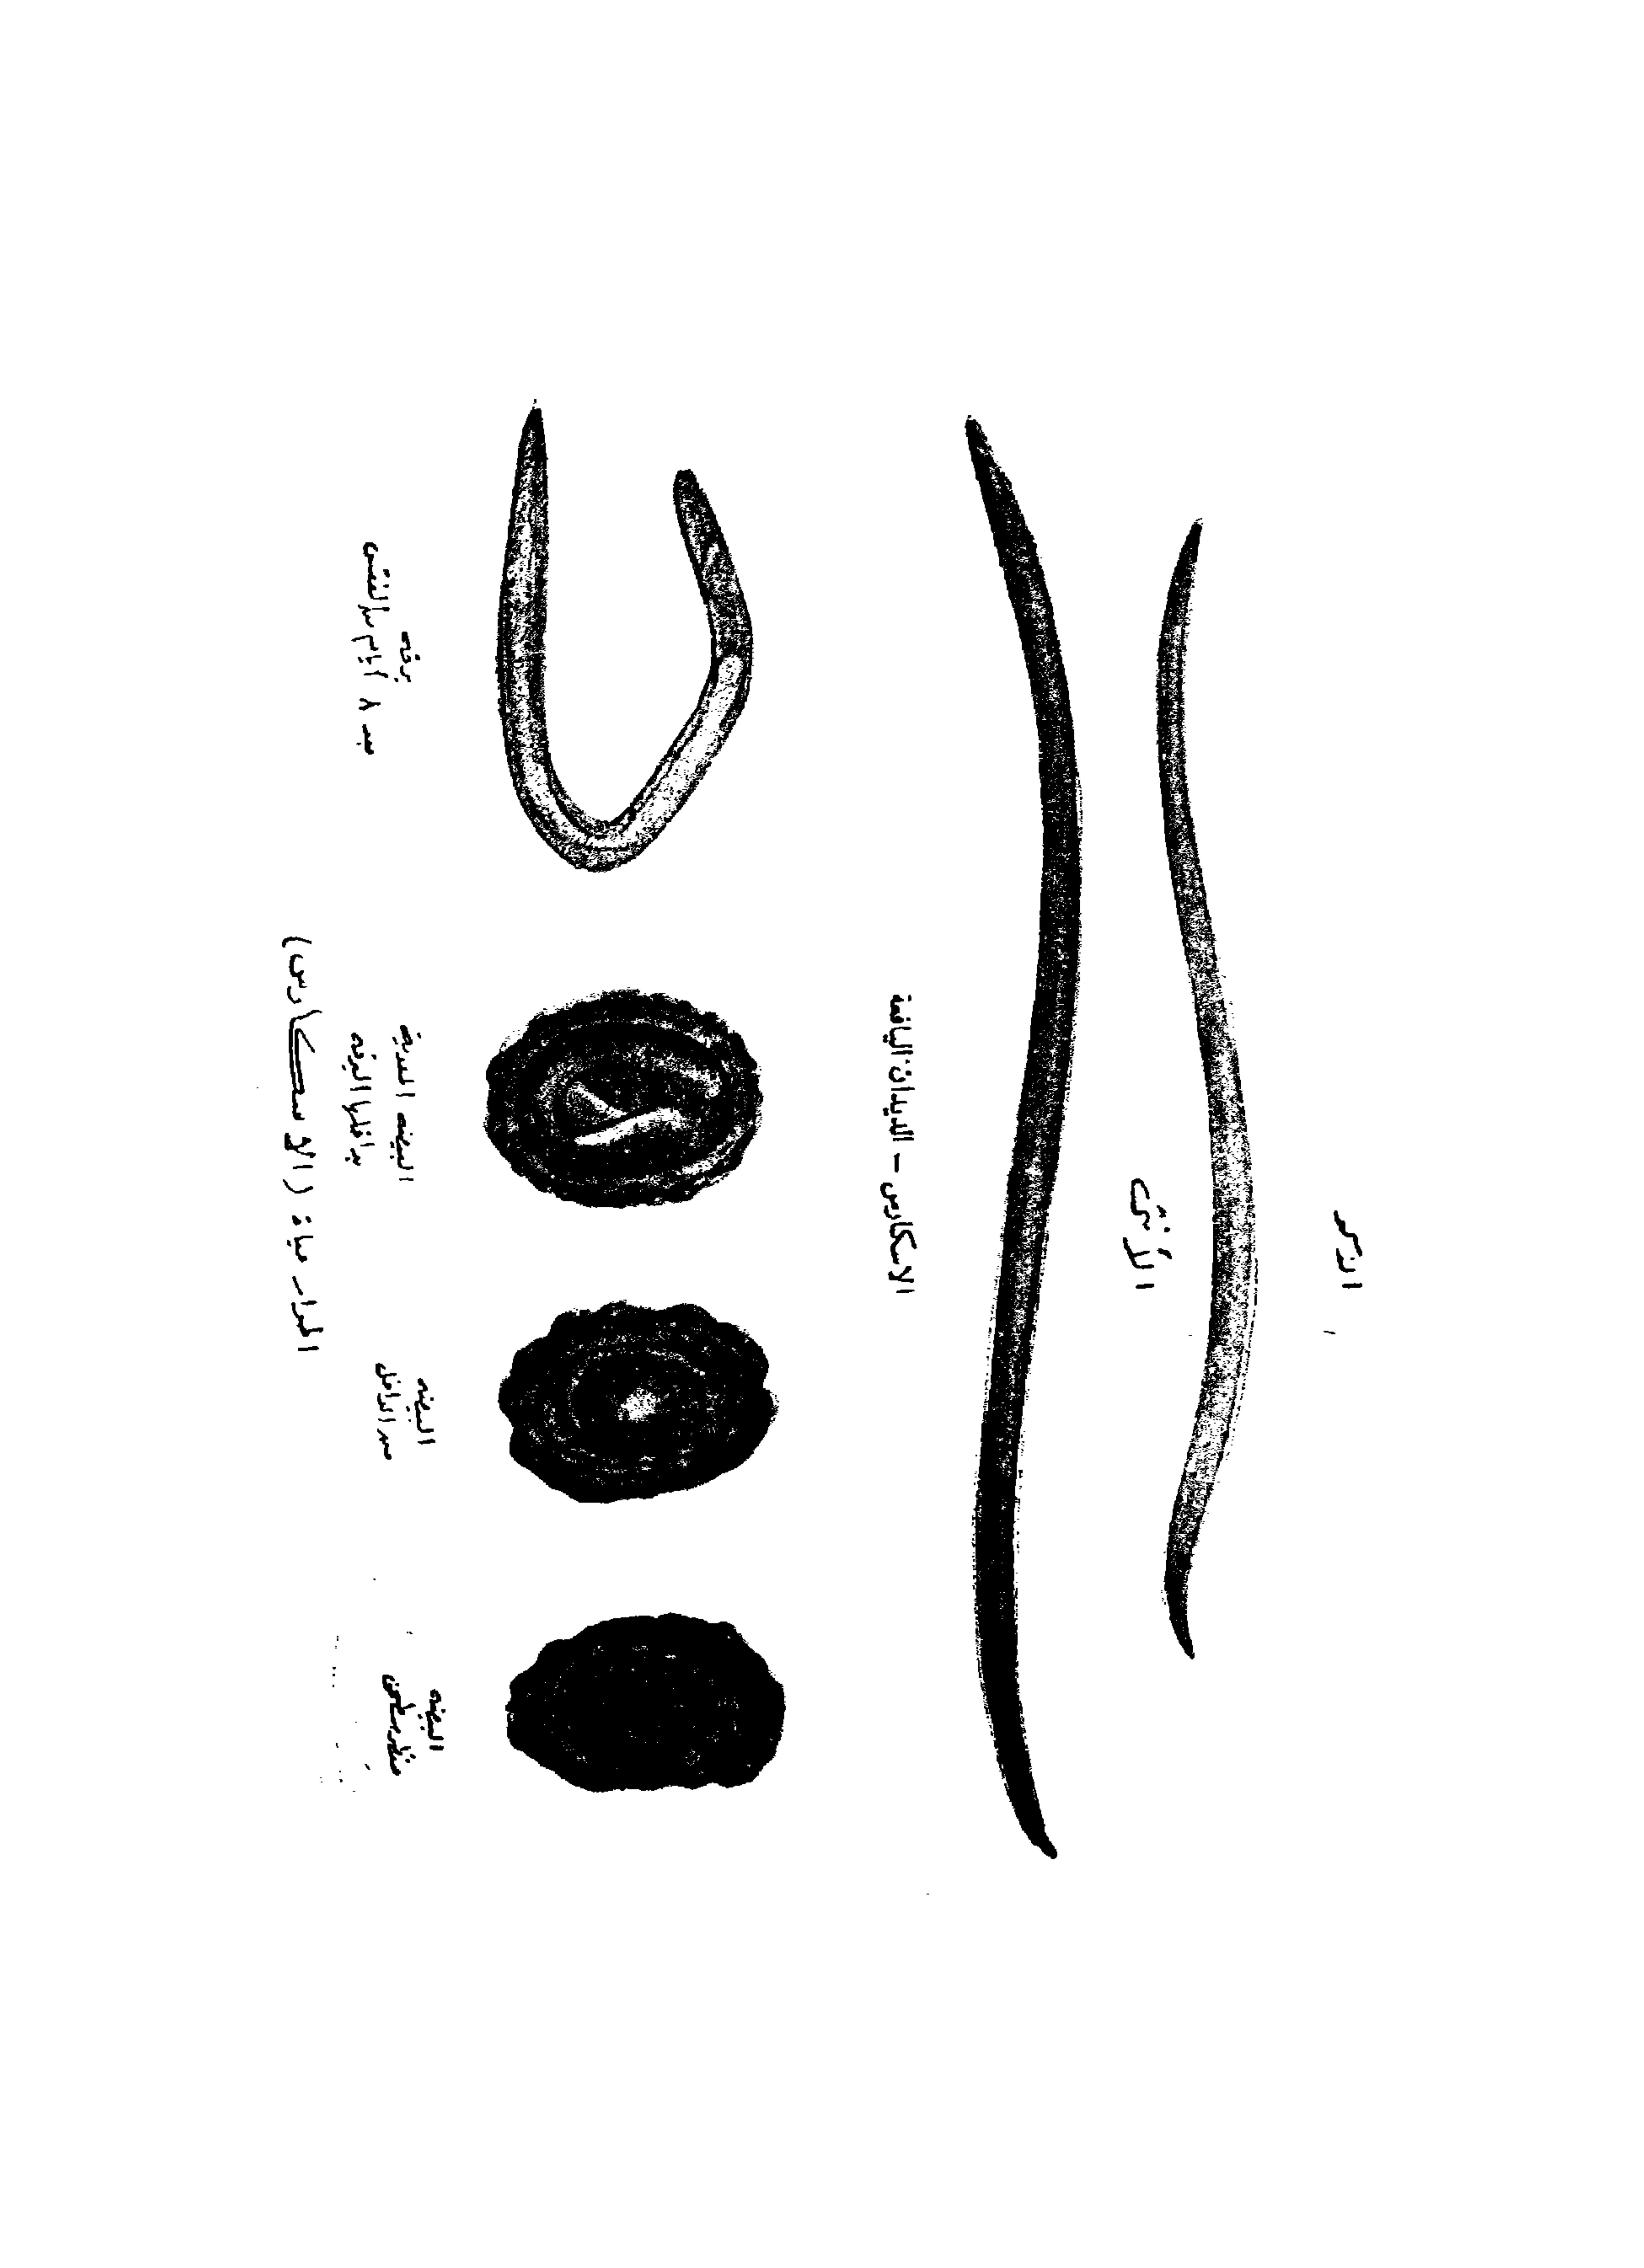 الذكر
الأنثى
الاسكارس - الديدان اليافعة
البيضه
منظر سطحى
البيضه
من الداخل
البيضه المعديه
بداخلها اليرقه
يرقه
بعد ٨ أيام بالفقس
المدار حياة (الاسكارس)